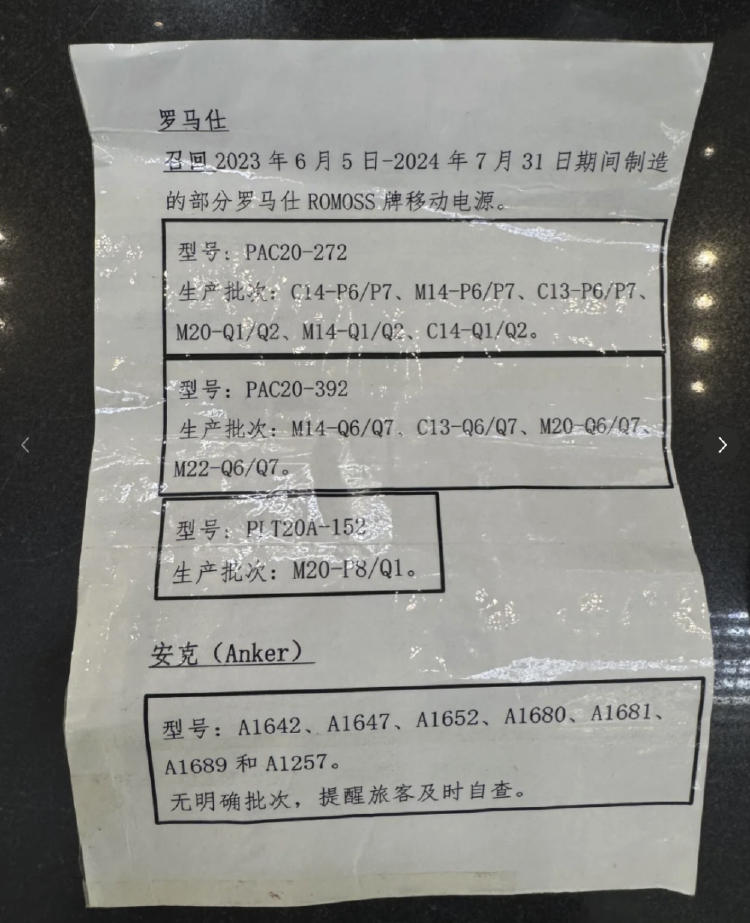 罗马仕
召回2023年6月5日-2024年7月31日期间制造
的部分罗马仕ROMOSS牌移动电源。
型号：PAC20-272
生产批次：C14-P6/P7、M14-P6/P7、C13-P6/P7、
M20-Q1/Q2、M14-Q1/Q2、C14-Q1/Q2。
型号：PAC20-392
生产批次：M14-Q6/Q7、C13-Q6/Q7、M20-Q6/Q7、
M22-Q6/Q7。
型号：PLT20A-152
生产批次：M20-P8/Q1。
安克（Anker）
型号：A1642、A1647、A1652、A1680、A1681、
A1689和A1257。
无明确批次，提醒旅客及时自查。